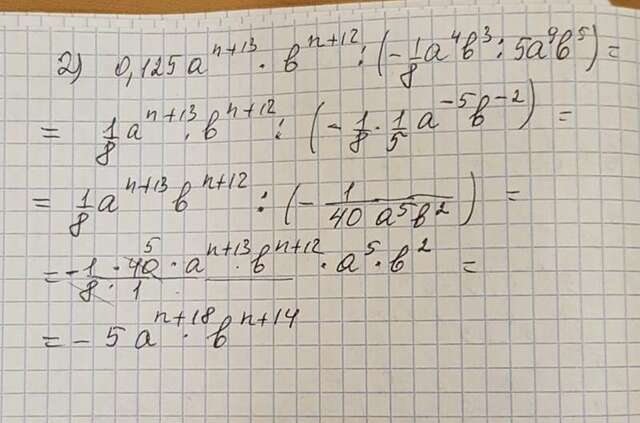 2) 0,125a^{n+13} · b^{n+12} : (-\frac{1}{8}a^4b^3 : 5a^9b^5) =
= \frac{1}{8}a^{n+13} · b^{n+12} : (-\frac{1}{8} · \frac{1}{5} a^{-5}b^{-2}) =
= \frac{1}{8}a^{n+13} b^{n+12} : (-\frac{1}{40 a^5b^2}) =
= -\frac{1 · 40^5 · a^{n+13} · b^{n+12}}{8 · 1} · a^5 · b^2 =
= -5a^{n+18} · b^{n+14}